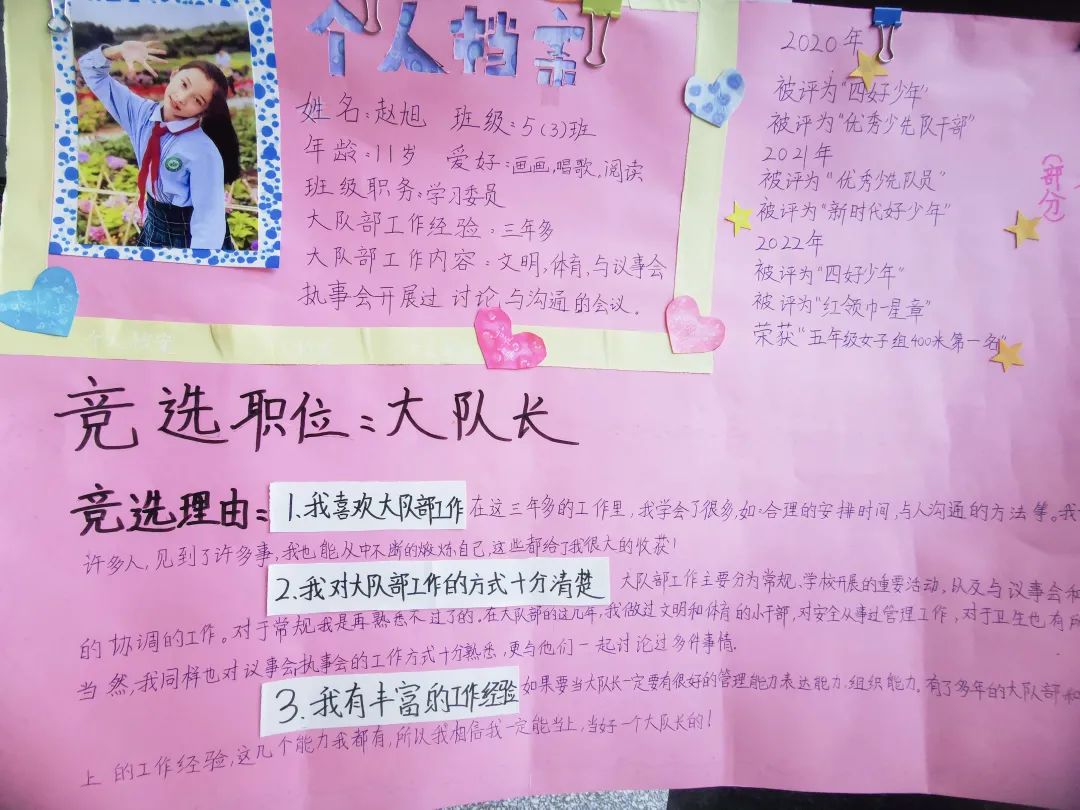 个人档案
姓名:赵旭 班级:5(3)班
年龄:11岁 爱好:画画,唱歌,阅读
班级职务:学习委员
大队部工作经验:三年多
大队部工作内容:文明,体育,与议事会
执事会开展过讨论与沟通的会议。
2020年
被评为“四好少年”
被评为“优秀少先队干部”
2021年
被评为“优秀少先队员”
被评为“新时代好少年”
2022年
被评为“四好少年”
被评为“红领巾一星章”
荣获“五年级女子组400米第一名”
(部分)
竞选职位:大队长
竞选理由:1.我喜欢大队部工作 在这三年多的工作里,我学会了很多,如:合理的安排时间,与人沟通的方法等。我
许多人,见到了许多事,我也能从中不断的煅炼自己,这些都给了我很大的收获!
2.我对大队部工作的方式十分清楚 大队部工作主要分为常规、学校开展的重要活动,以及与议事会和
的协调的工作。对于常规我是再熟悉不过了的。在大队部的这几年,我做过文明和体育的小干部,对安全从事过管理工作,对于卫生也有所
当然,我同样也对议事会执事会的工作方式十分熟悉,更与他们一起讨论过多件事情.
3.我有丰富的工作经验 如果要当大队长一定要有很好的管理能力表达能力.组织能力.有了多年的大队部和
上的工作经验,这几个能力我都有,所以我相信我一定能当上,当好一个大队长的!